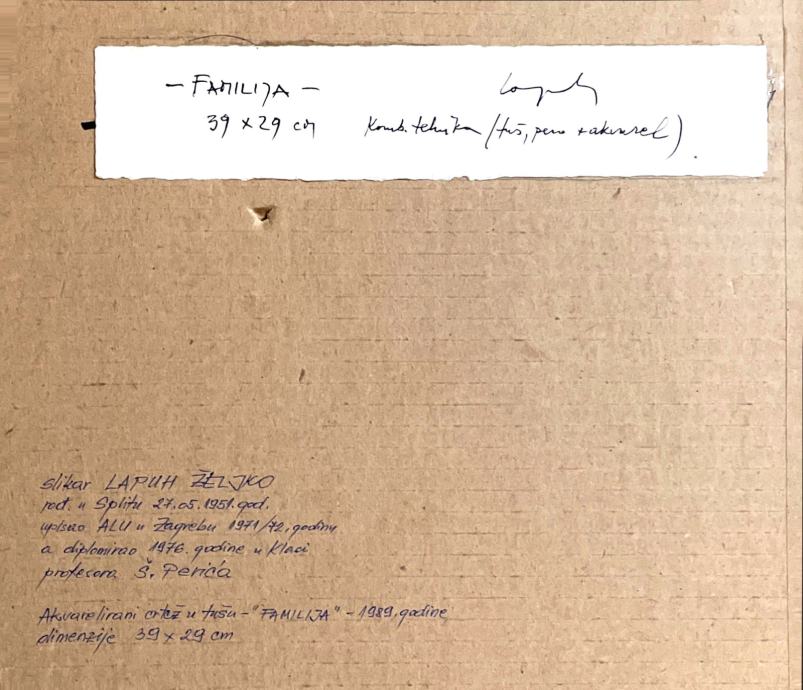 - FAMILIJA -
Lapuh
39 x 29 cm
Komb. tehnika (tuš, pero + akvarel)
slikar LAPUH ŽELJKO
rođ. u Splitu 27.05.1951.god.
upisao ALU u Zagrebu 1971/72. godinu
a diplomirao 1976. godine u klasi
profesora Š. Perića
Akvarelirani crtež u tušu - "FAMILIJA" - 1989. godine
dimenzije 39 x 29 cm